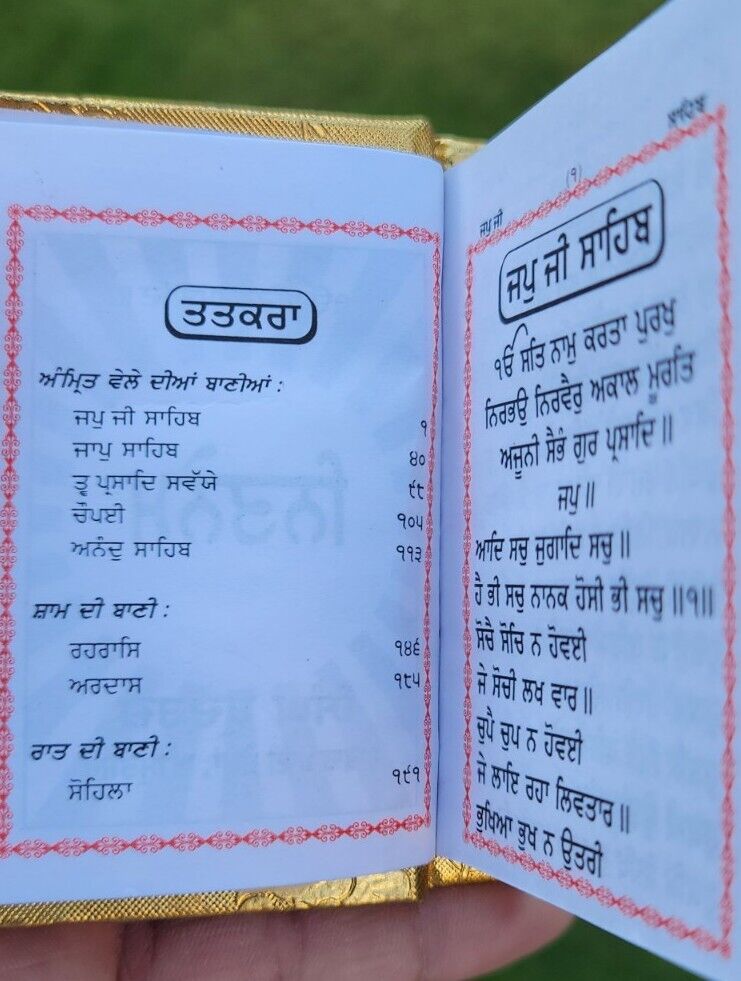 ਤਤਕਰਾ
ਅੰਮ੍ਰਿਤ ਵੇਲੇ ਦੀਆਂ ਬਾਣੀਆਂ :
ਜਪੁ ਜੀ ਸਾਹਿਬ ੧
ਜਾਪੁ ਸਾਹਿਬ ੪੦
ਤ੍ਵ ਪ੍ਰਸਾਦਿ ਸਵੱਯੇ ੯੮
ਚੌਪਈ ੧੦੫
ਅਨੰਦੁ ਸਾਹਿਬ ੧੧੩
ਸ਼ਾਮ ਦੀ ਬਾਣੀ :
ਰਹਰਾਸਿ ੧੪੬
ਅਰਦਾਸ ੧੮੫
ਰਾਤ ਦੀ ਬਾਣੀ :
ਸੋਹਿਲਾ ੧੯੧
ਜਪੁ ਜੀ (੧) ਸਾਹਿਬ
ਜਪੁ ਜੀ ਸਾਹਿਬ
ੴ ਸਤਿ ਨਾਮੁ ਕਰਤਾ ਪੁਰਖੁ
ਨਿਰਭਉ ਨਿਰਵੈਰੁ ਅਕਾਲ ਮੂਰਤਿ
ਅਜੂਨੀ ਸੈਭੰ ਗੁਰ ਪ੍ਰਸਾਦਿ ॥
ਜਪੁ ॥
ਆਦਿ ਸਚੁ ਜੁਗਾਦਿ ਸਚੁ ॥
ਹੈ ਭੀ ਸਚੁ ਨਾਨਕ ਹੋਸੀ ਭੀ ਸਚੁ ॥੧॥
ਸੋਚੈ ਸੋਚਿ ਨ ਹੋਵਈ
ਜੇ ਸੋਚੀ ਲਖ ਵਾਰ ॥
ਚੁਪੈ ਚੁਪ ਨ ਹੋਵਈ
ਜੇ ਲਾਇ ਰਹਾ ਲਿਵਤਾਰ ॥
ਭੁਖਿਆ ਭੁਖ ਨ ਉਤਰੀ